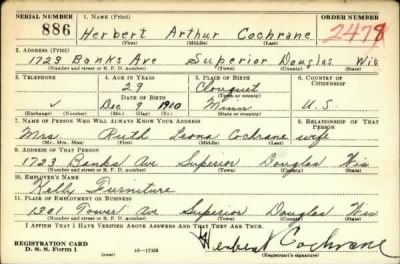 SERIAL NUMBER 1. NAME (Print) ORDER NUMBER
886 Herbert Arthur Cochrane 2478
(First) (Middle) (Last)
2. ADDRESS (Print)
1723 Banks Ave Superior Douglas Wis
(Number and street or R. F. D. number) (Town) (County) (State)
3. TELEPHONE 4. AGE IN YEARS 5. PLACE OF BIRTH 6. COUNTRY OF CITIZENSHIP
29 Cloquet
DATE OF BIRTH (Town or county)
Dec 9 1910 Minn U.S.
(Exchange) (Number) (Mo.) (Day) (Yr.) (State or country)
7. NAME OF PERSON WHO WILL ALWAYS KNOW YOUR ADDRESS 8. RELATIONSHIP OF THAT PERSON
Mrs. Ruth Leona Cochrane wife
(Mr., Mrs., Miss) (First) (Middle) (Last)
9. ADDRESS OF THAT PERSON
1723 Banks Ave Superior Douglas Wis
(Number and street or R. F. D. number) (Town) (County) (State)
10. EMPLOYER'S NAME
Kelly Furniture
11. PLACE OF EMPLOYMENT OR BUSINESS
1301 Tower Ave Superior Douglas Wis
(Number and street or R. F. D. number) (Town) (County) (State)
I AFFIRM THAT I HAVE VERIFIED ABOVE ANSWERS AND THAT THEY ARE TRUE.
Herbert Cochrane
REGISTRATION CARD
D. S. S. Form 1 (over) 16—17105 (Registrant's signature)